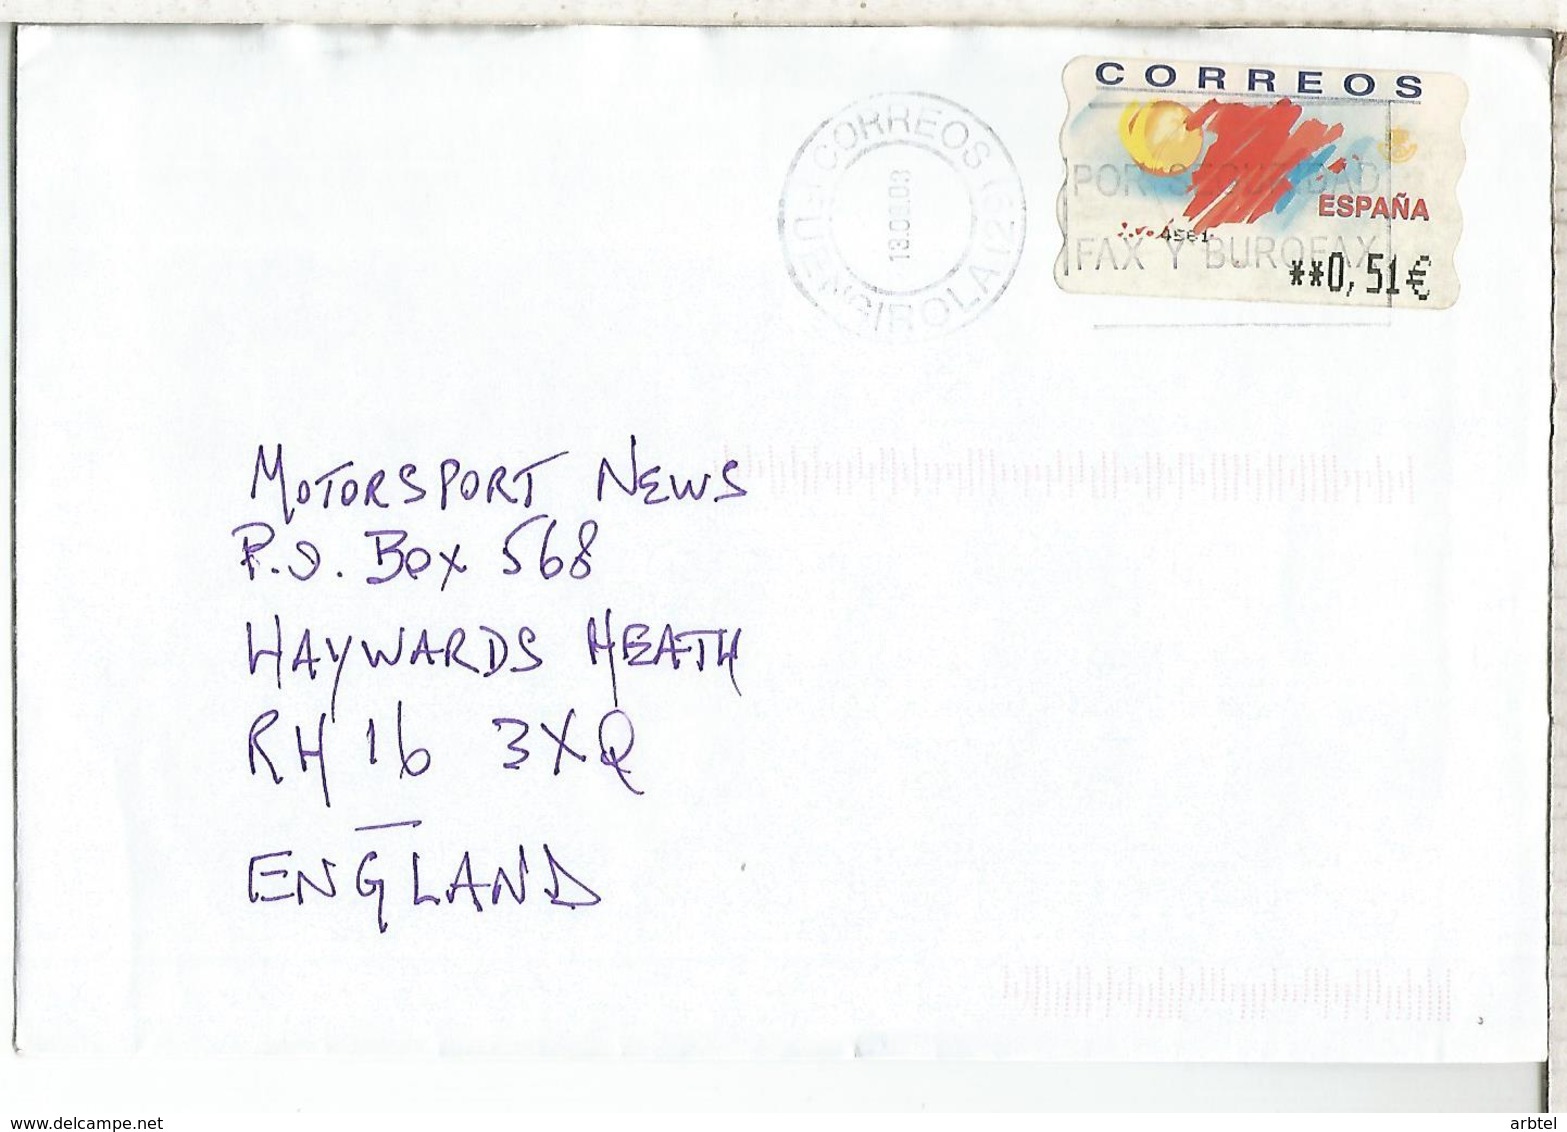 CORREOS
CORREOS (29)
FUENGIROLA
POR SEGURIDAD
FAX Y BUROFAX
ESPAÑA
4561
**0,51€
MOTORSPORT NEWS
P.O. BOX 568
HAYWARDS HEATH
RH16 3XQ
ENGLAND
www.delcampe.net
arbtel